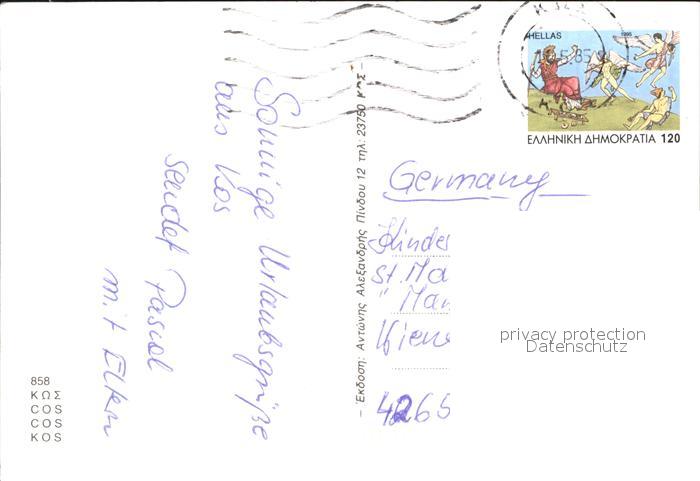 Sonnige Urlaubsgrüße
aus Kos
sendet Pascal
mit Eltern
858
ΚΩΣ
COS
COS
KOS
– Ἔκδοση: Αντώνης Αλεξανδρής Πίνδου 12 τηλ: 23750 ΚΩΣ –
HELLAS 1995
ΕΛΛΗΝΙΚΗ ΔΗΜΟΚΡΑΤΙΑ 120
Germany
Kinder
St. Ma
" Mar
4265
privacy protection
Datenschutz